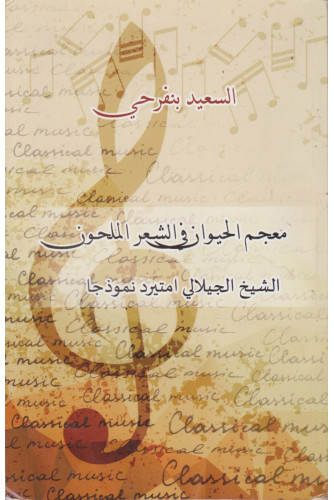 Classical music
Classical music
السعيد بنفرحي
Classical music
Classical music
معجم الحيوان في الشعر الملحون
الشيخ الجيلالي امتيرد نموذجا
Classical music
Classical music
Classical music